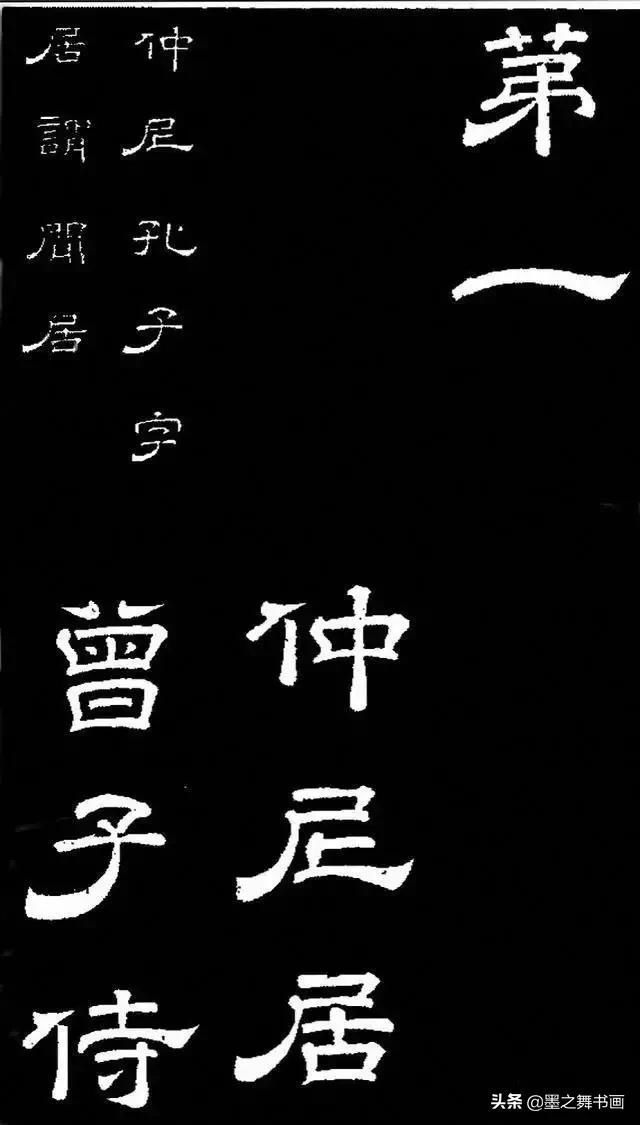 苐一
仲尼居
仲尼孔子字
居謂閒居
曾子侍
头条 @墨之舞书画